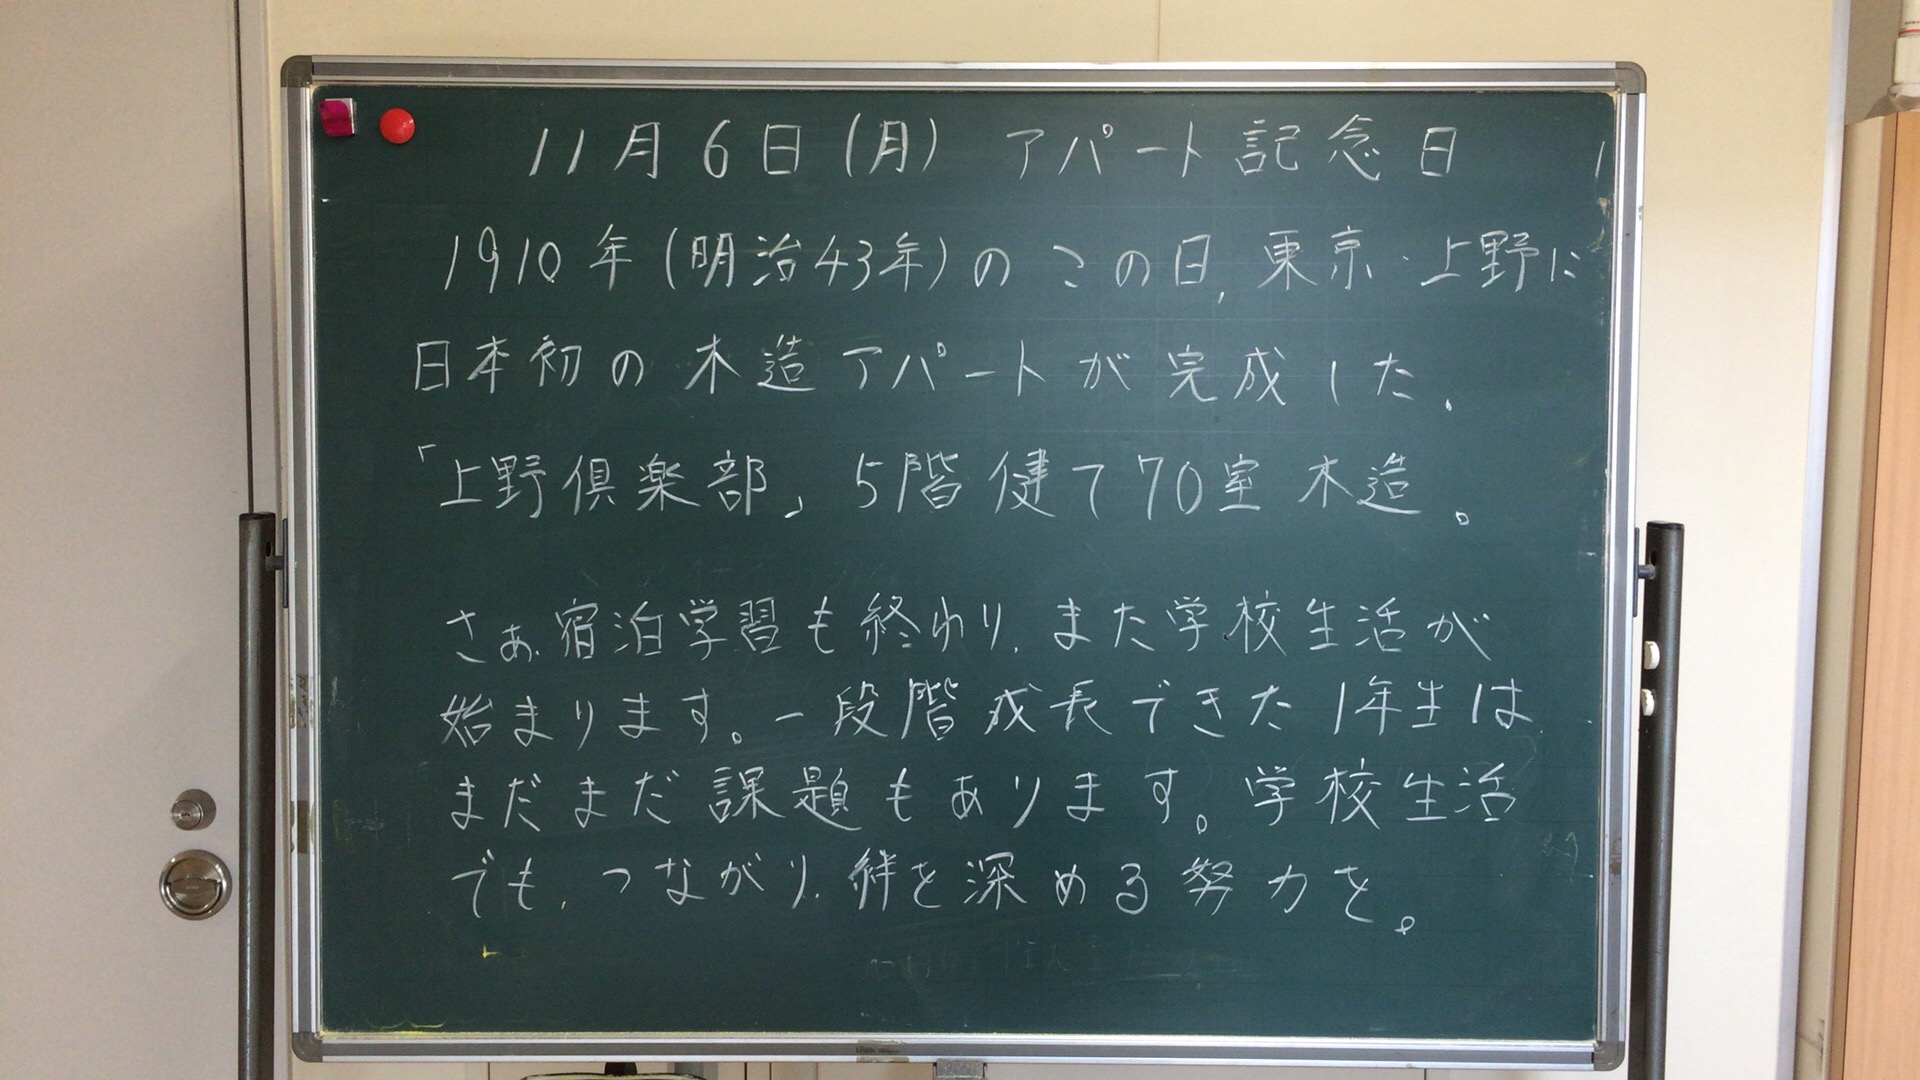 11月6日(月) アパート記念日
1910年(明治43年)のこの日,東京・上野に
日本初の木造アパートが完成した.
「上野倶楽部」5階健て70室 木造。
さぁ.宿泊学習も終わり,また学校生活が
始まります。一段階成長できた1年生は
まだまだ課題もあります。学校生活
でも,つながり,絆を深める努力を。